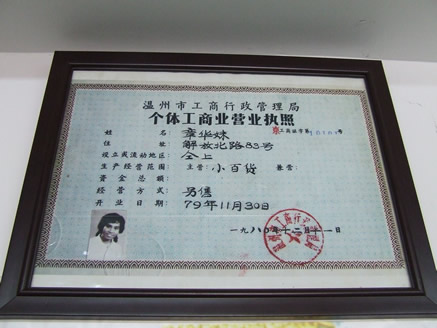 温州市工商行政管理局
个体工商业营业执照
东工商证字第10101号
姓名: 章华妹
住址: 解放北路83号
设立或流动地区: 仝上
生产经营范围: 主营: 小百货 兼营:
资金总额:
经营方式: 另售
开业日期: 79年11月30日
一九八〇年十二月十一日